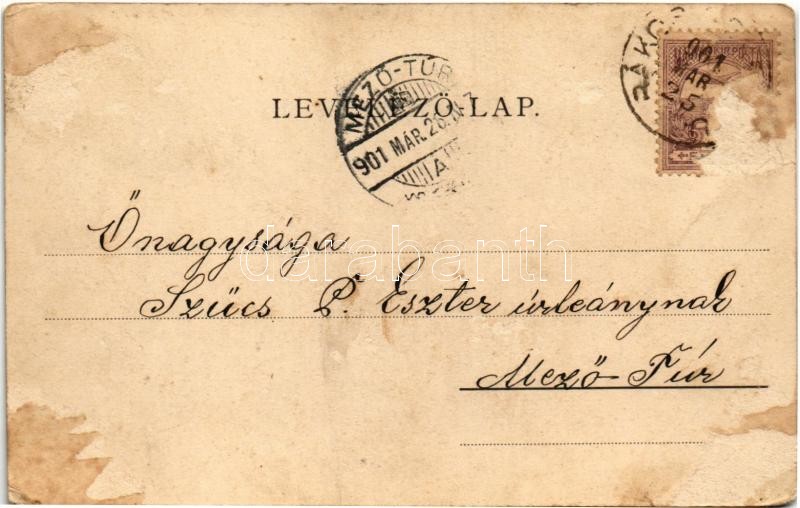 LEVELEZŐ-LAP.
MEZŐ-TÚR
901 MÁR. 26.
A
901
MÁR
25
Őnagysága
Szűcs P. Eszter úrleánynak
Mező-Túr
darabanth